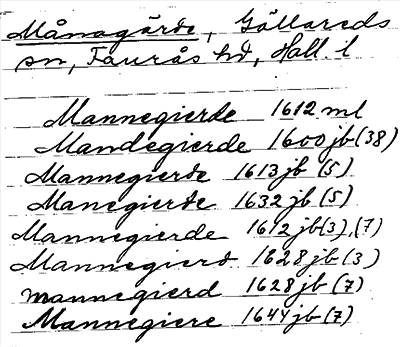 Månagärde, Gällareds
sn, Faurås hd, Hall. l
Mannegierde 1612 ml
Mandegierde 1600 jb (38)
Mannegierde 1613 jb (5)
Manegierde 1632 jb (5)
Mannegierde 1612 jb (3), (7)
Mannegierd 1628 jb (3)
Mannegierd 1628 jb (7)
Mannegiere 1644 jb (7)